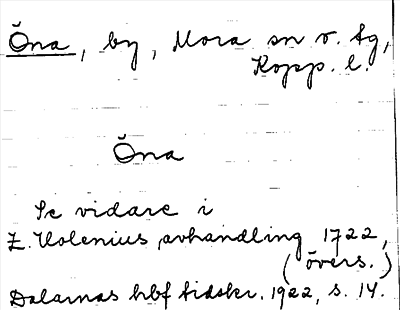 Öna, by, Mora sn o. tg,
Kopp. l.
Öna
Se vidare i
Z. Holenius avhandling 1722,
(övers.)
Dalarnas hbf tidskr. 1922, s. 14.